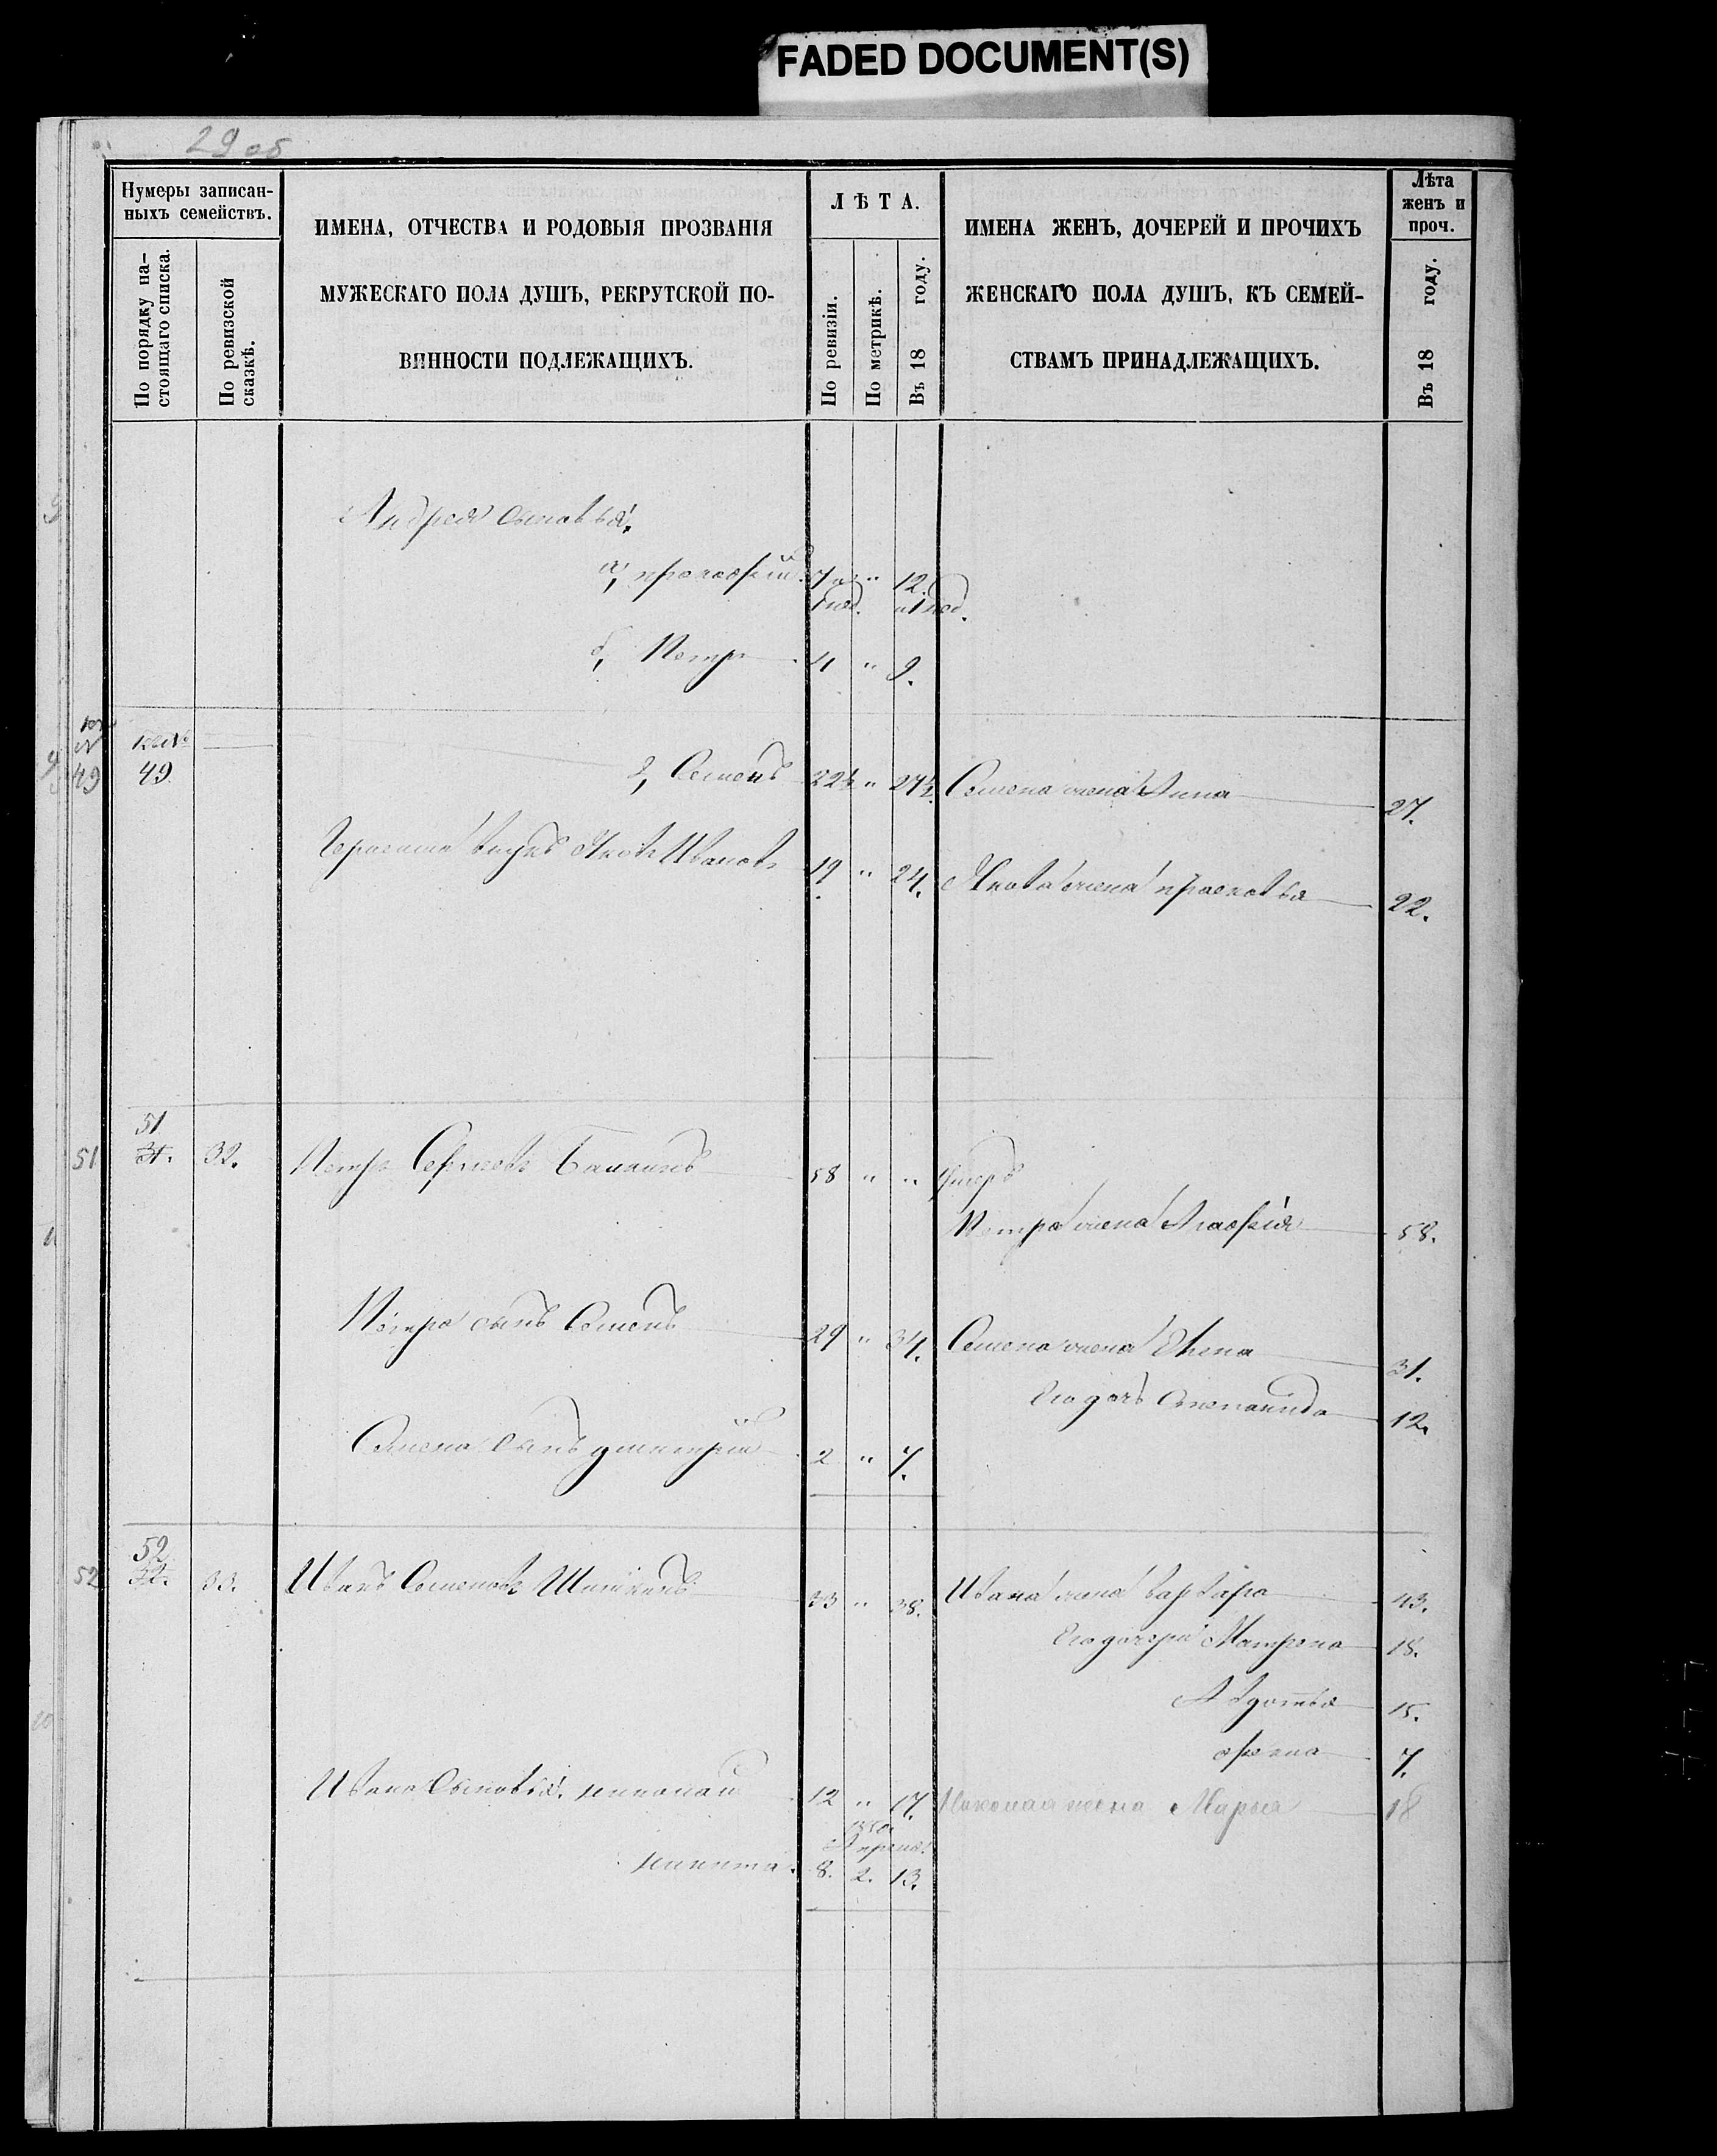 FADED DOCUMENT(S)
29 об
Нумеры записан-
ныхъ семействъ.
По порядку на-
стоящаго списка.
По ревизской
сказкѣ.
ИМЕНА, ОТЧЕСТВА И РОДОВЫЯ ПРОЗВАНІЯ
МУЖЕСКАГО ПОЛА ДУШЪ, РЕКРУТСКОЙ ПО-
ВИННОСТИ ПОДЛЕЖАЩИХЪ.
ЛѢТА.
По ревизіи.
По метрикѣ.
Въ 18 году.
ИМЕНА ЖЕНЪ, ДОЧЕРЕЙ И ПРОЧИХЪ
ЖЕНСКАГО ПОЛА ДУШЪ, КЪ СЕМЕЙ-
СТВАМЪ ПРИНАДЛЕЖАЩИХЪ.
Лѣта
женъ и
проч.
Въ 18 году.
Андрея сыновья,
а, прокофій. 7 " 12.
б, Петръ 4 " 9.
49 49 2, Семенъ 22½ " 27½ Семена жена Анна 27.
внукъ Яковъ Ивановъ 19 " 24. Якова жена прасковья 22.
51
51 31. 32. Петръ Сергѣевъ 58 " " Умеръ
Петра жена Агафія 58.
Петра сынъ Семенъ 29 " 34. Семена жена Елена 31.
Его дочь Степанида 12.
Семена сынъ дмитрій 2 " 7.
52
52 32. 33. Иванъ Семеновъ Шишкинъ 33 " 38. Ивана жена варвара 43.
Его дочери Матрена 18.
Авдотья 15.
орена 7.
Ивана Сыновья, николай 12 " 17. Николая жена Марья 18
1850.
Апреля.
никита. 8. 2. 13.